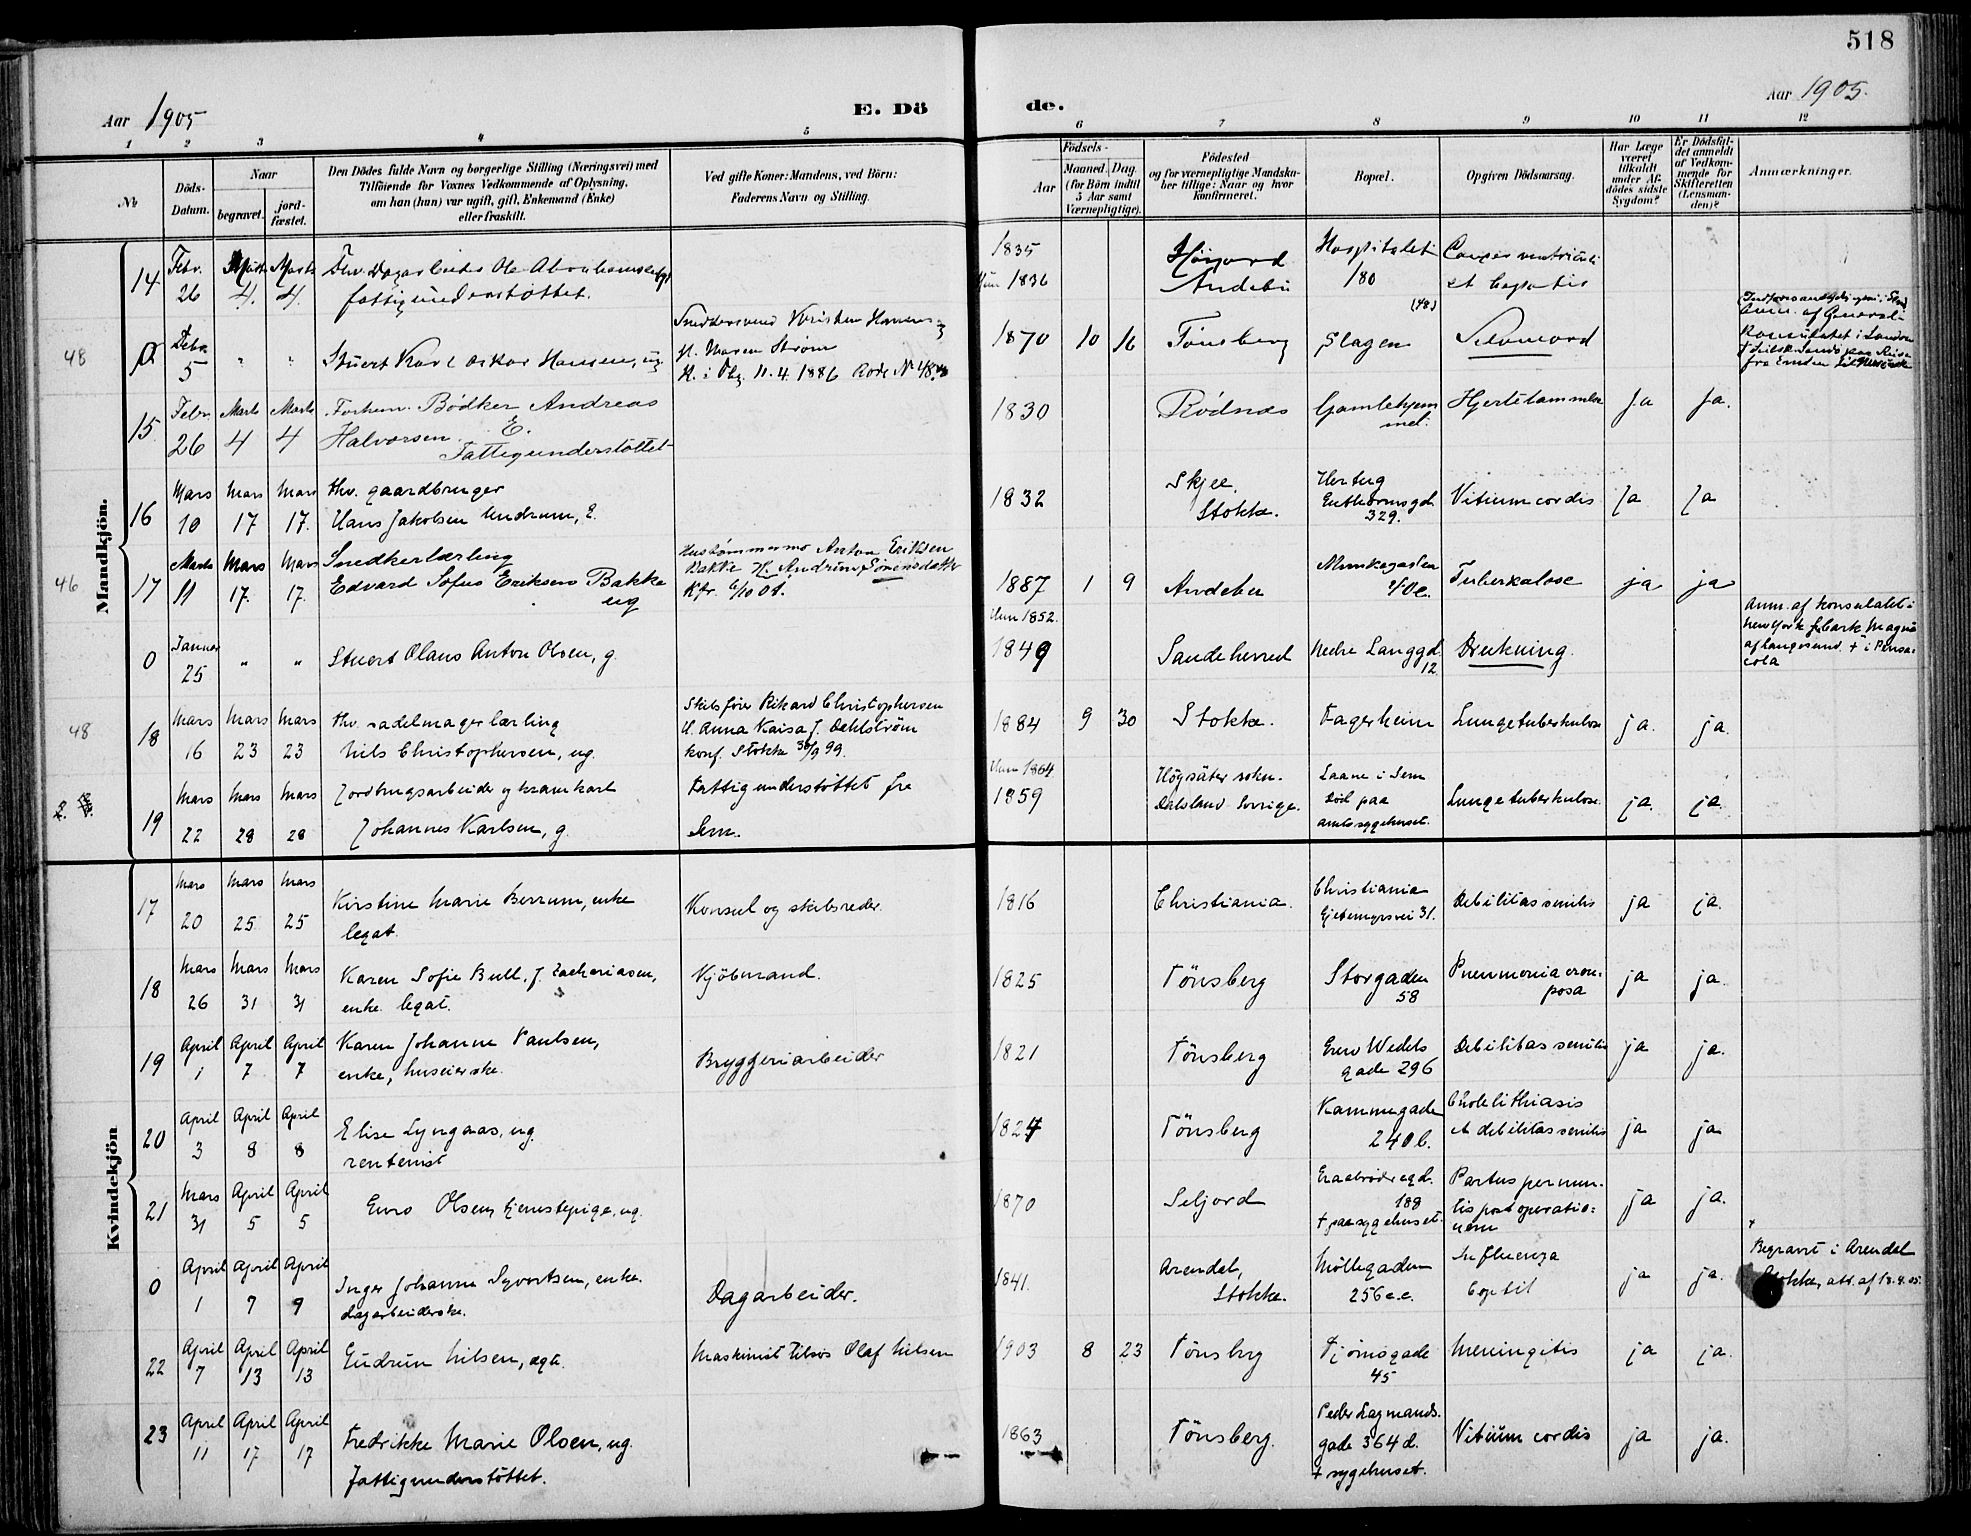 518
Aar 1905
E. Dö
de.
Aar 1905.
1 2 3 4 5 6 7 8 9 10 11 12
No
Döds-
Datum.
Naar
begravet.
jord-
fæstet.
Den Dödes fulde Navn og borgerlige Stilling (Næringsvei) med
Tilföiende for Voxnes Vedkommende af Oplysning,
om han (hun) var ugift, gift, Enkemand (Enke)
eller fraskilt.
Ved gifte Koner: Mandens, ved Börn:
Faderens Navn og Stilling.
Födsels-
Aar
Maaned. Dag.
(for Börn indtil
5 Aar samt
Værnepligtige).
Födested
og for værnepligtige Mandska-
ber tillige: Naar og hvor
konfirmeret.
Bopæl.
Opgiven Dödsaarsag.
Har Læge
været
tilkaldt
under Af-
dödes sidste
Sygdom?
Er Dödsfal-
det anmeldt
af Vedkom-
mende for
Skifteretten
(Lensman-
den)?
Anmærkninger.
Mandkjön.
14 Febr. 26 Marts 4. Marts 4.
fattigunderstøttet.
1835
1836
Andebu
Hospitalet
180
48
0 Febr. 5 " "
Stuert Karl Oskar Hansen, ug
Snedkersvend Kristen Hansen
H. Maren Strøm
K. i Tbg. 11. 4. 1886 Rode No 48
1870 10 16
Tønsberg
(48)
Slagen
Selvmord
15. Febr. 26 Marts 4 Marts 4
Forhen. Bødker Andreas
Halvorsen E.
Fattigunderstøttet
1830
Rødnæs
Gamlehjem
met.
Hjertelammelse
Ja Ja.
16 Mars 10 Mars 17 Mars 17.
fhv. gaardbruger
Hans Jakobsen Undrum, E.
1832
Skjee,
Stokke.
Hertug
Guthormsgd.
329.
Vitium cordis
Ja Ja
46
17 Marts 11 Mars 17. Mars 17.
Snedkerlærling
Edvard Sofus Eriksen Bakke
ug
Anton Eriksen
Bakke H. Andrine Sörensdatter
1887 1 9
Andebu
Munkegaten
Tuberkulose
ja ja
0 Januar 25 " "
Stuert Olaus Anton Olsen, g.
1852.
1849
Sandeherred
Nedre Langgd.
12
Drukning.
Anm. af konsulatet i
New York
af Langesund. + i Pensa-
cola
48
18 Mars 16 Mars 23 Mars 23
fhv. sadelmagerlærling
Nils Christophersen, ug.
Skibsfører Rikard Christophersen
H. Anna Kaisa f. Dahlström
konf. Stokke 30/9 99.
1884 9 30
Stokke.
Fagerheim
Lungetuberkulose
ja. ja.
19 Mars 22 Mars 28 Mars 28
Jordbrugsarbeider og kramkarl
Johannes Karlsen, g.
Fattigunderstøttet fra
Sem.
1864
1859
Högsäter sokn.
Dalsland Sverige.
Laane i Sem
död paa
amtssygehuset.
Lungetuberkulose.
ja ja.
Kvindekjön
17 Mars 20 Mars 25 Mars 25
Kirstine Marie Berrum, enke
legat.
Konsul og skibsreder.
1816
Christiania.
Christiania
Gjetemyrsvei 31.
Debilitas senilis
ja ja.
18 Mars 26 Mars 31 Mars 31
Karen Sofie Bull, f. Zachariasen,
enke. legat.
Kjöbmand.
1825
Tönsberg
Storgaden
58
Pneumonia crou-
posa
ja ja.
19 April 1 April 7 April 7
Karen Johanne Paulsen,
enke, huseierske.
Bryggeriarbeider
1821
Tönsberg
Grev Wedels
gade 296
Debilitas senilis
ja ja.
20 April 3 April 8 April 8
Elise Lyngaas, ug.
rentenist
1824
Tönsberg
Kammegaden
240 b.
Cholelithiasis
et debilitas senilis
ja ja
21 Mars 31 April 5 April 5
Guro Olsen, tjenestepige, ug.
1870
Seljord
Graabrødregd.
188
+ paa sygehuset.
Partus per nun-
lis post operatio-
nem
ja ja.
0 April 1 April 7 April 9
Inger Johanne Syvertsen, enke.
dagarbeiderske.
Dagarbeider.
1841.
Arendal,
Stokke.
Möllegaden
256 e.e.
Influenza
ja ja.
+
Begravet i Arendal
Stokke, att. af 13.4.05.
22 April 7 April 13 April 13
Gudrun Nilsen, ægte.
Maskinist tilsös Olaf Nilsen
1903 8 23
Tönsbrg
Tjömögade
45
Meningitis
ja ja.
23 April 11 April 17 April 17
Fredrikke Marie Olsen, ug.
Fattigunderstöttet.
1863
Tönsberg.
Peder Lagmands-
gade 364 d.
+ sygehuset.
Vitium cordis
ja ja.